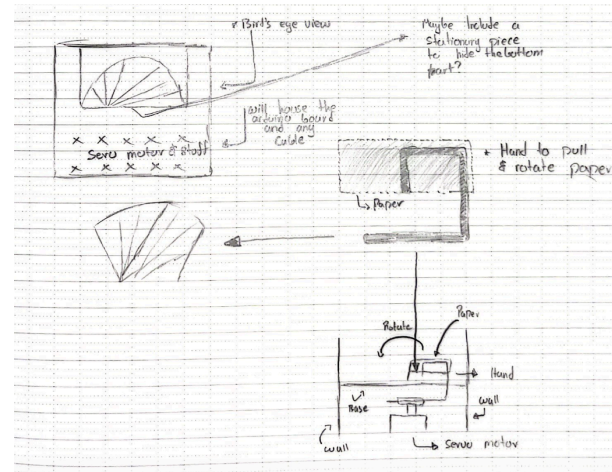 * Bird's eye view
Maybe Include a
stationary piece
to hide the bottom
part?
will house the
arduino board
and any
cable
x x x x x
Servo motor & stuff
x x x x x
* Hand to pull
& rotate paper
Paper
Rotate
Paper
Hand
Base
wall
wall
Servo motor